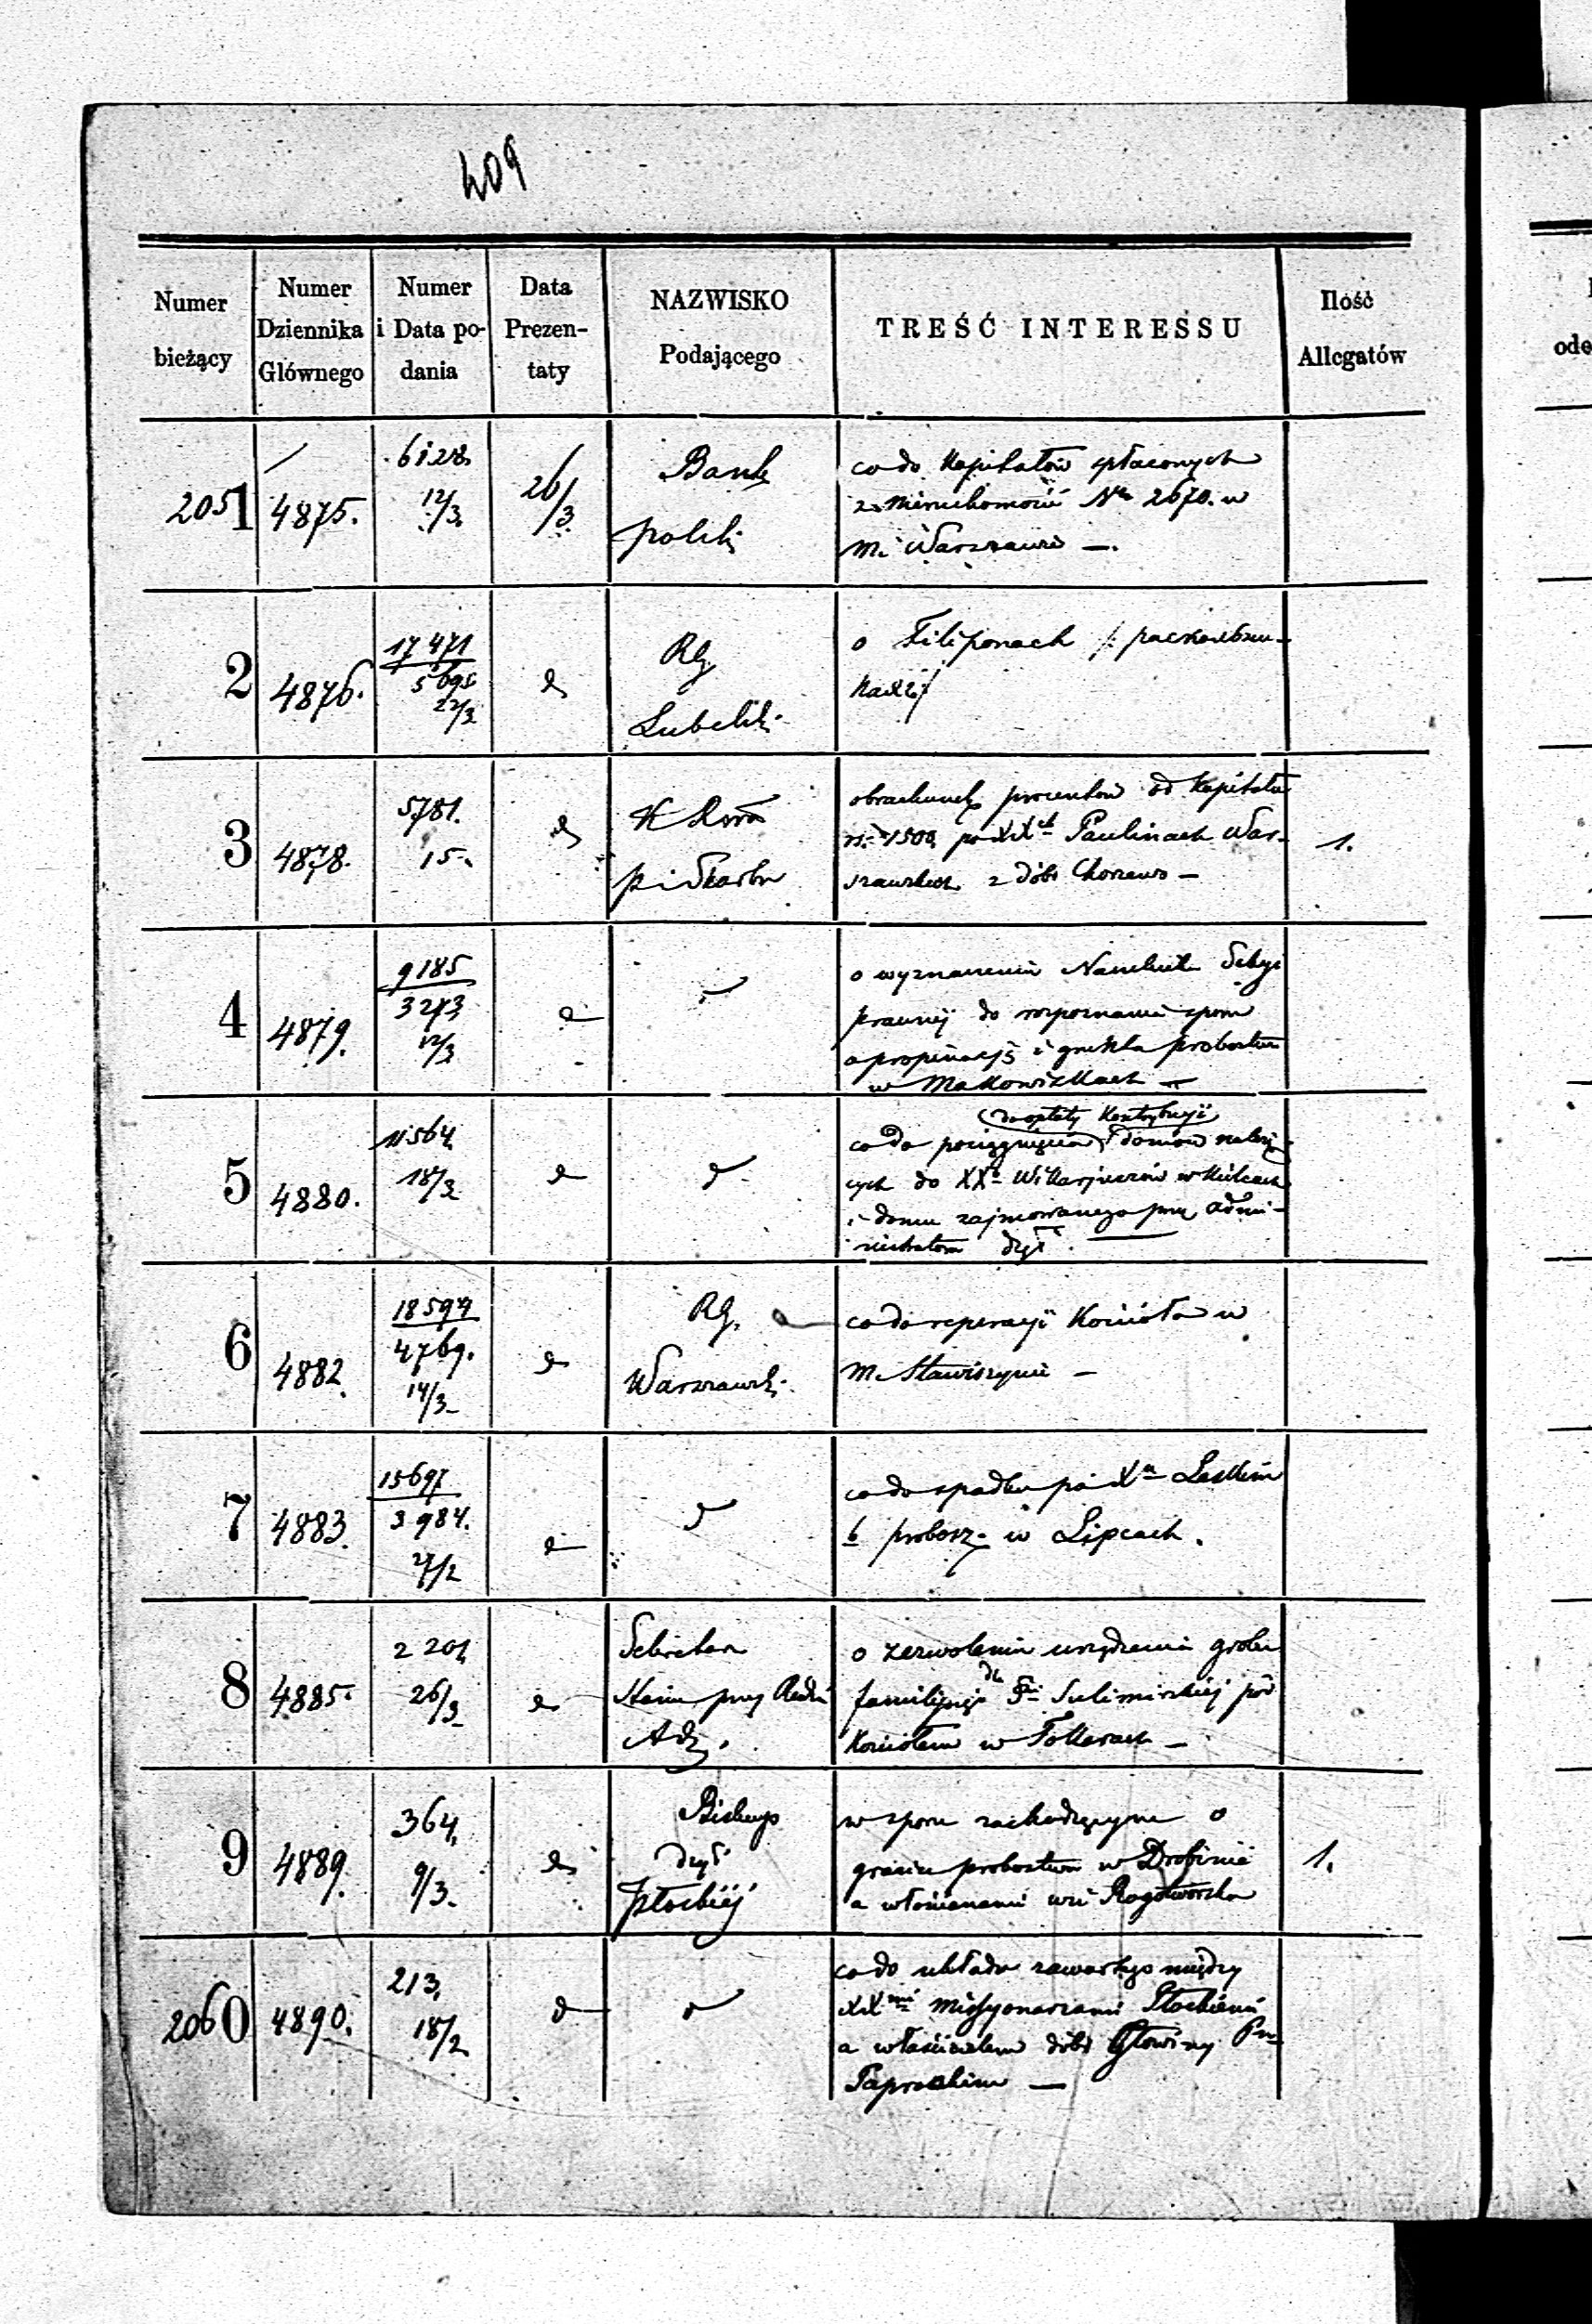 409
Numer bieżący | Numer Dziennika Głównego | Numer i Data podania | Data Prezentaty | NAZWISKO Podającego | TREŚĆ INTERESSU | Ilość Allegatów
2051 | 4875. | 6128. 12/3. | 26/3. | Bank polski | co do Kapitałów spłaconych
z nieruchomości Nr 2670. w
m. Warszawie —.
2 | 4876. | 17471 5695 22/3 | d | RG Lubelski | o Filiponach
3 | 4878. | 5781. 15 | d | K Rzą P i Skarbu | obrachunek procentów od Kapitału
rs. 1500 po XX Paulinach War-
szawskich z dóbr — | 1.
4 | 4879. | 9185 3273 12/3 | d | " | o wyznaczenie Naczelnika Sekcyi
prawnej do rozpoznania sporu
o propinacyą i grunta probostwa
w —
5 | 4880. | 11564 18/3 | d | d | co do pociągnięcia (do opłaty Kontrybucyi) domów należą-
cych do XX Wikaryuszów w Kielcach
i domu zajmowanego przez Admi-
nistratora dyec.
6 | 4882. | 18594 4769. 14/3 | d | RG. Warszawski | co do reperacyi Kościoła w
m. Stawiszynie —
7 | 4883. | 15697 3984. 27/2 | d | d | co do spadku po X Laskim
b probosz. w Lipcach.
8 | 4885. | 2201 26/3 | d | Sekretarz Stanu przy Radzie Adm. | o zezwolenie urządzenia grobu
familijnego dla Sulimirskiej pod
Kościołem w
9 | 4889. | 364. 9/3. | d | Biskup dyec płockiej | w sporze zachodzącym o
granice probostwa w Drobinie
a włościanami wsi Rogotworska | 1.
2060 | 4890. | 213. 18/2 | d | d | co do układu zawartego między
XX Missyonarzami Płockiemi
a właścicielem dóbr Głowiny Pm
Paprockim —
ode